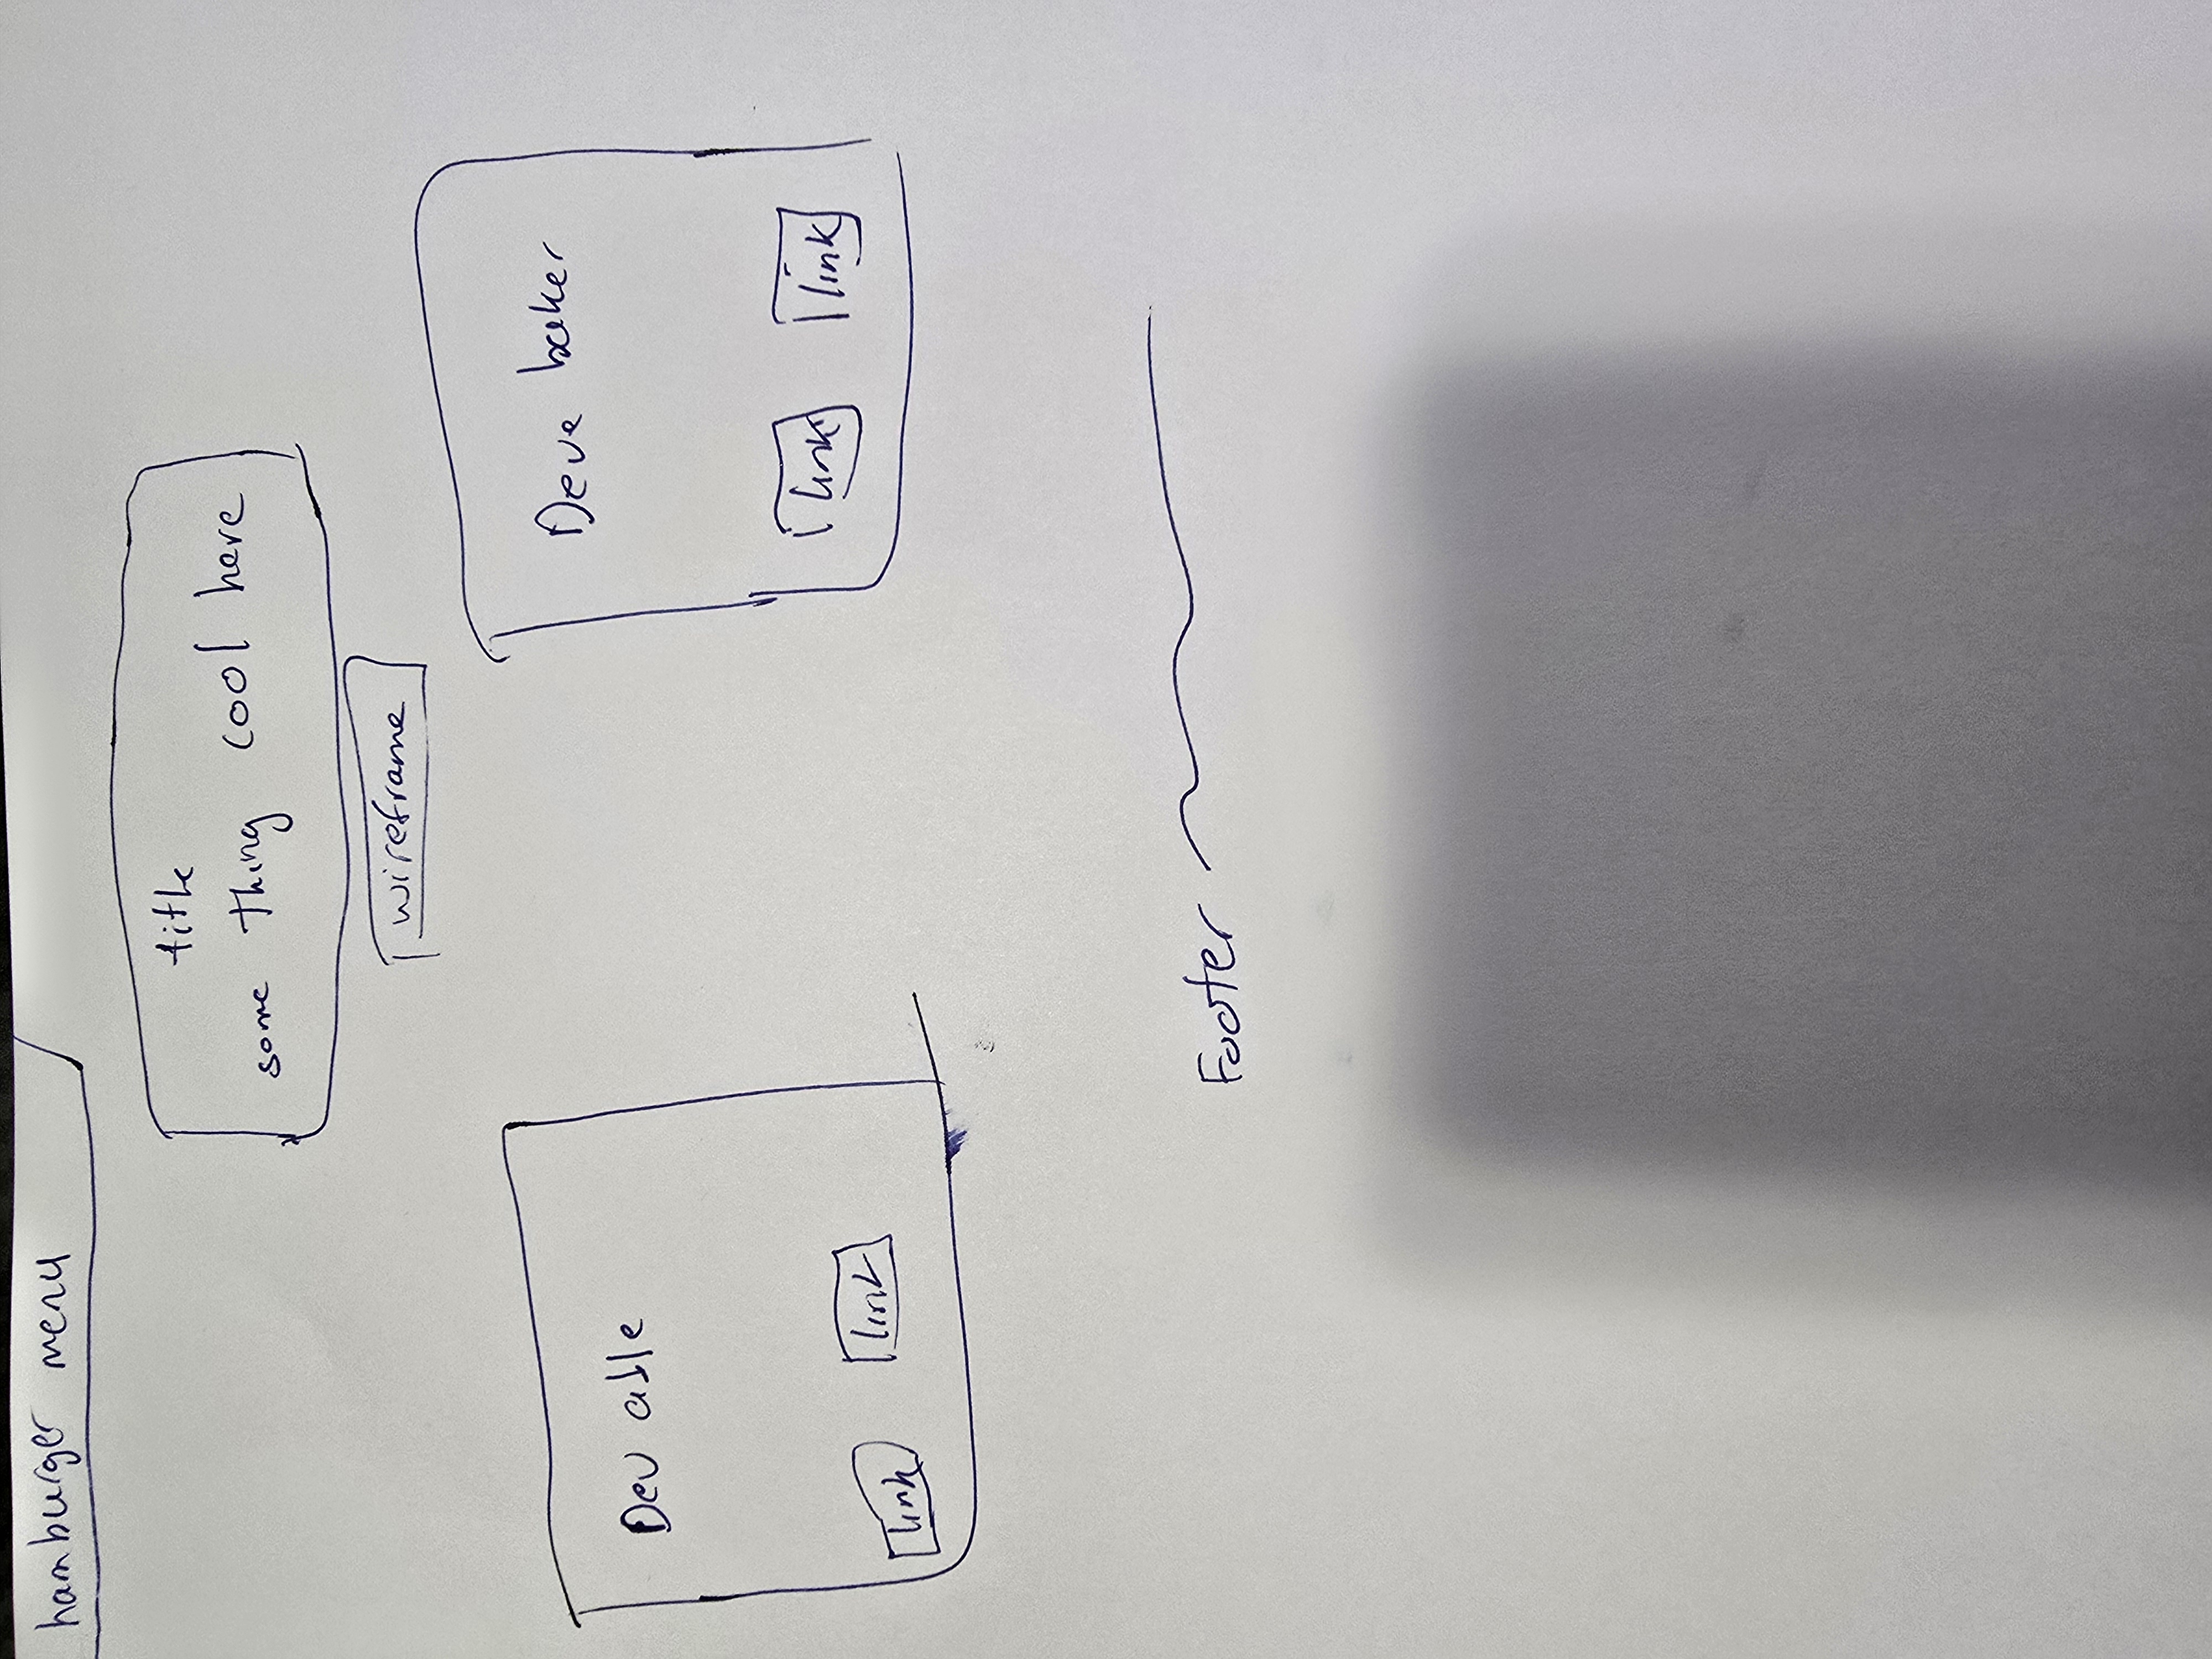 hamburger menu
title
some thing cool here
wireframe
Dev able
link
link
Deve baker
link
link
Footer